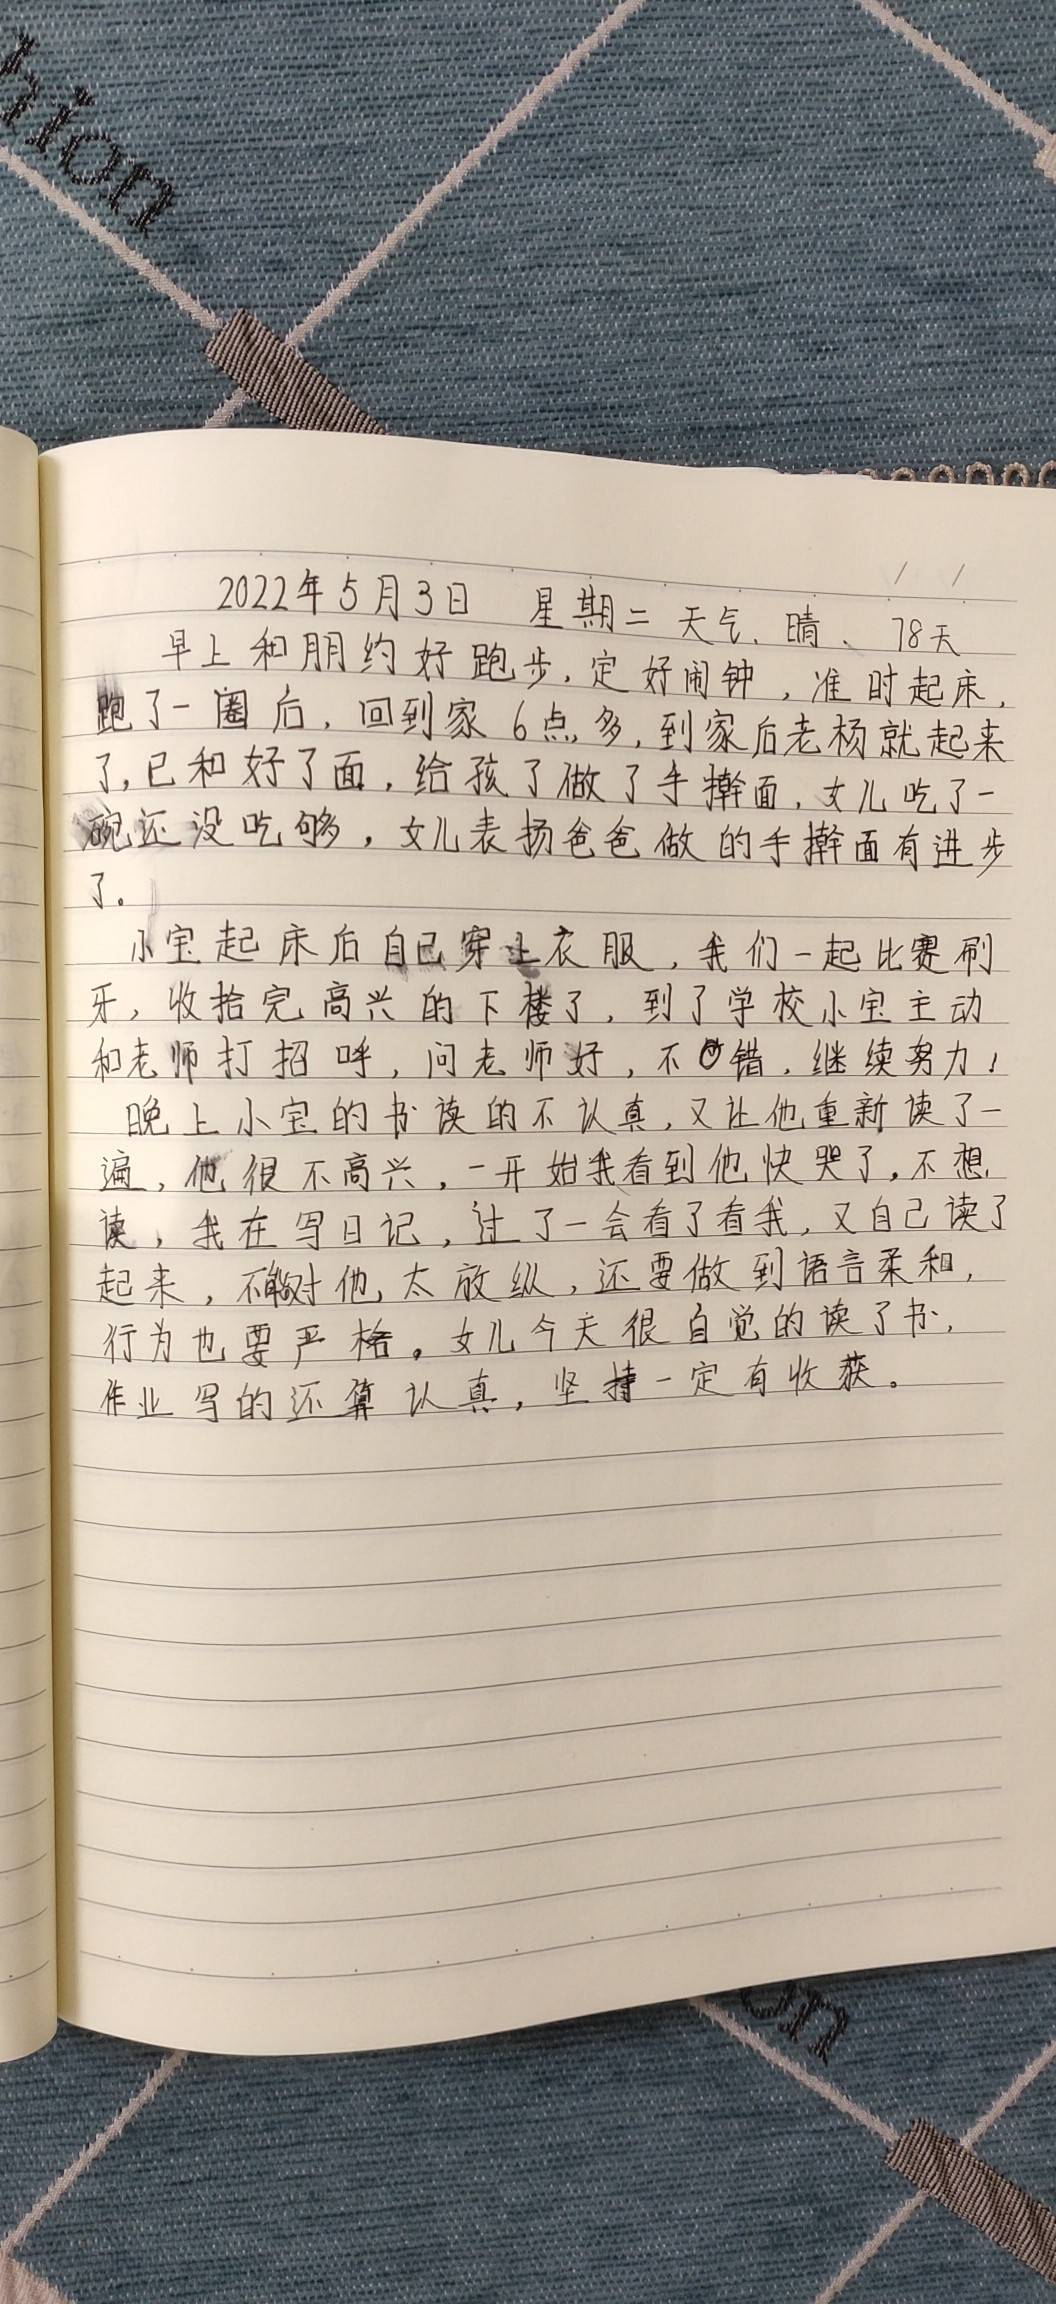 hion
2022年5月3日 星期二 天气、晴、 78天
早上和朋约好跑步,定好闹钟,准时起床,
跑了一圈后,回到家6点多,到家后老杨就起来
了,已和好了面,给孩了做了手擀面,女儿吃了一
碗还没吃够,女儿表扬爸爸做的手擀面有进步
了。
小宝起床后自己穿上衣服,我们一起比赛刷
牙,收拾完高兴的下楼了,到了学校小宝主动
和老师打招呼,问老师好,不错,继续努力!
晚上小宝的书读的不认真,又让他重新读了一
遍,他很不高兴,一开始我看到他快哭了,不想
读,我在写日记,过了一会看了看我,又自己读了
起来,不能对他太放纵,还要做到语言柔和,
行为也要严格。女儿今天很自觉的读了书,
作业写的还算认真,坚持一定有收获。
on